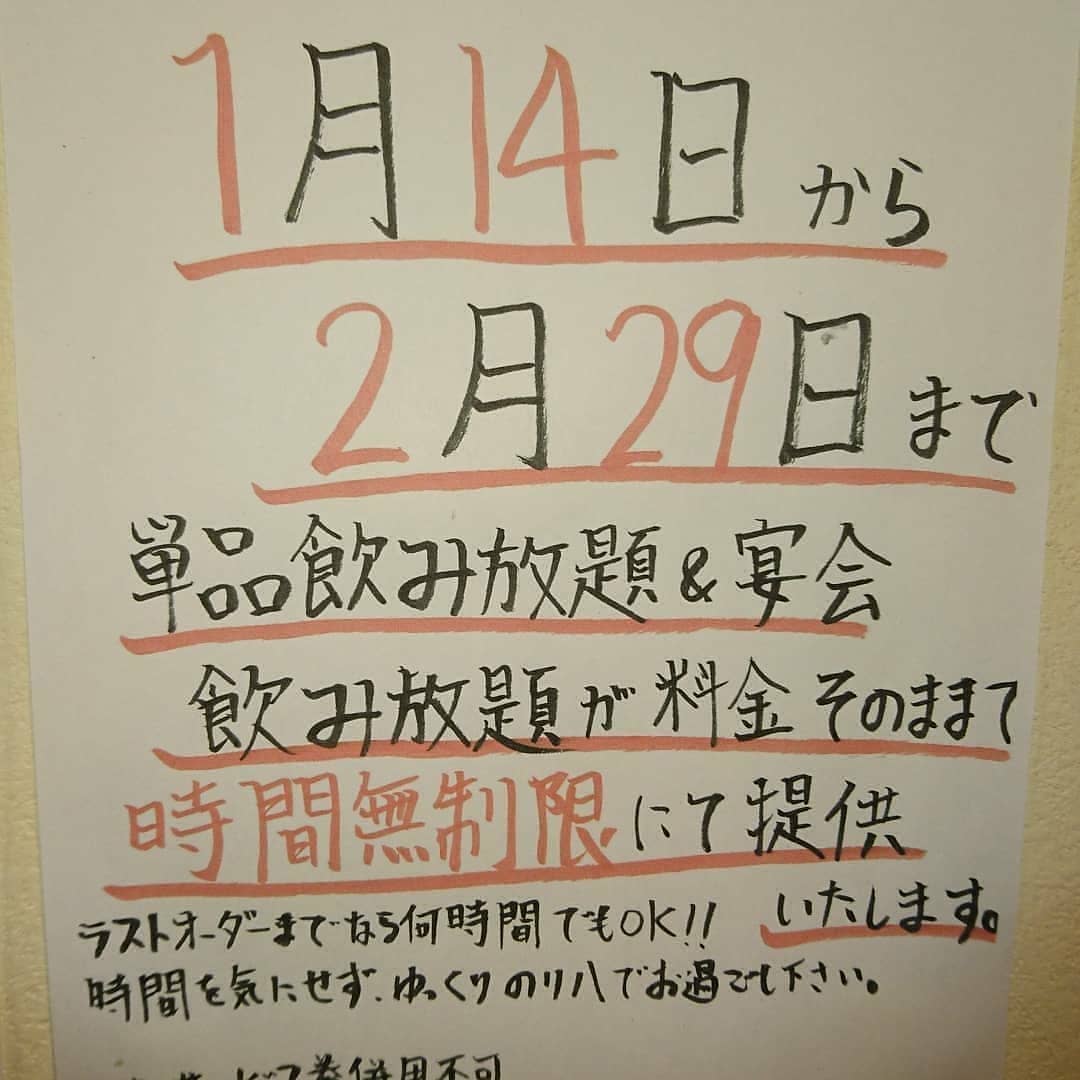 1月14日から
2月29日まで
単品飲み放題&宴会
飲み放題が料金そのままて
時間無制限にて提供
いたします。
ラストオーダーまでなら何時間でもOK!!
時間を気にせず、ゆっくりのり八でお過ごし下さい。
サービス券併用不可